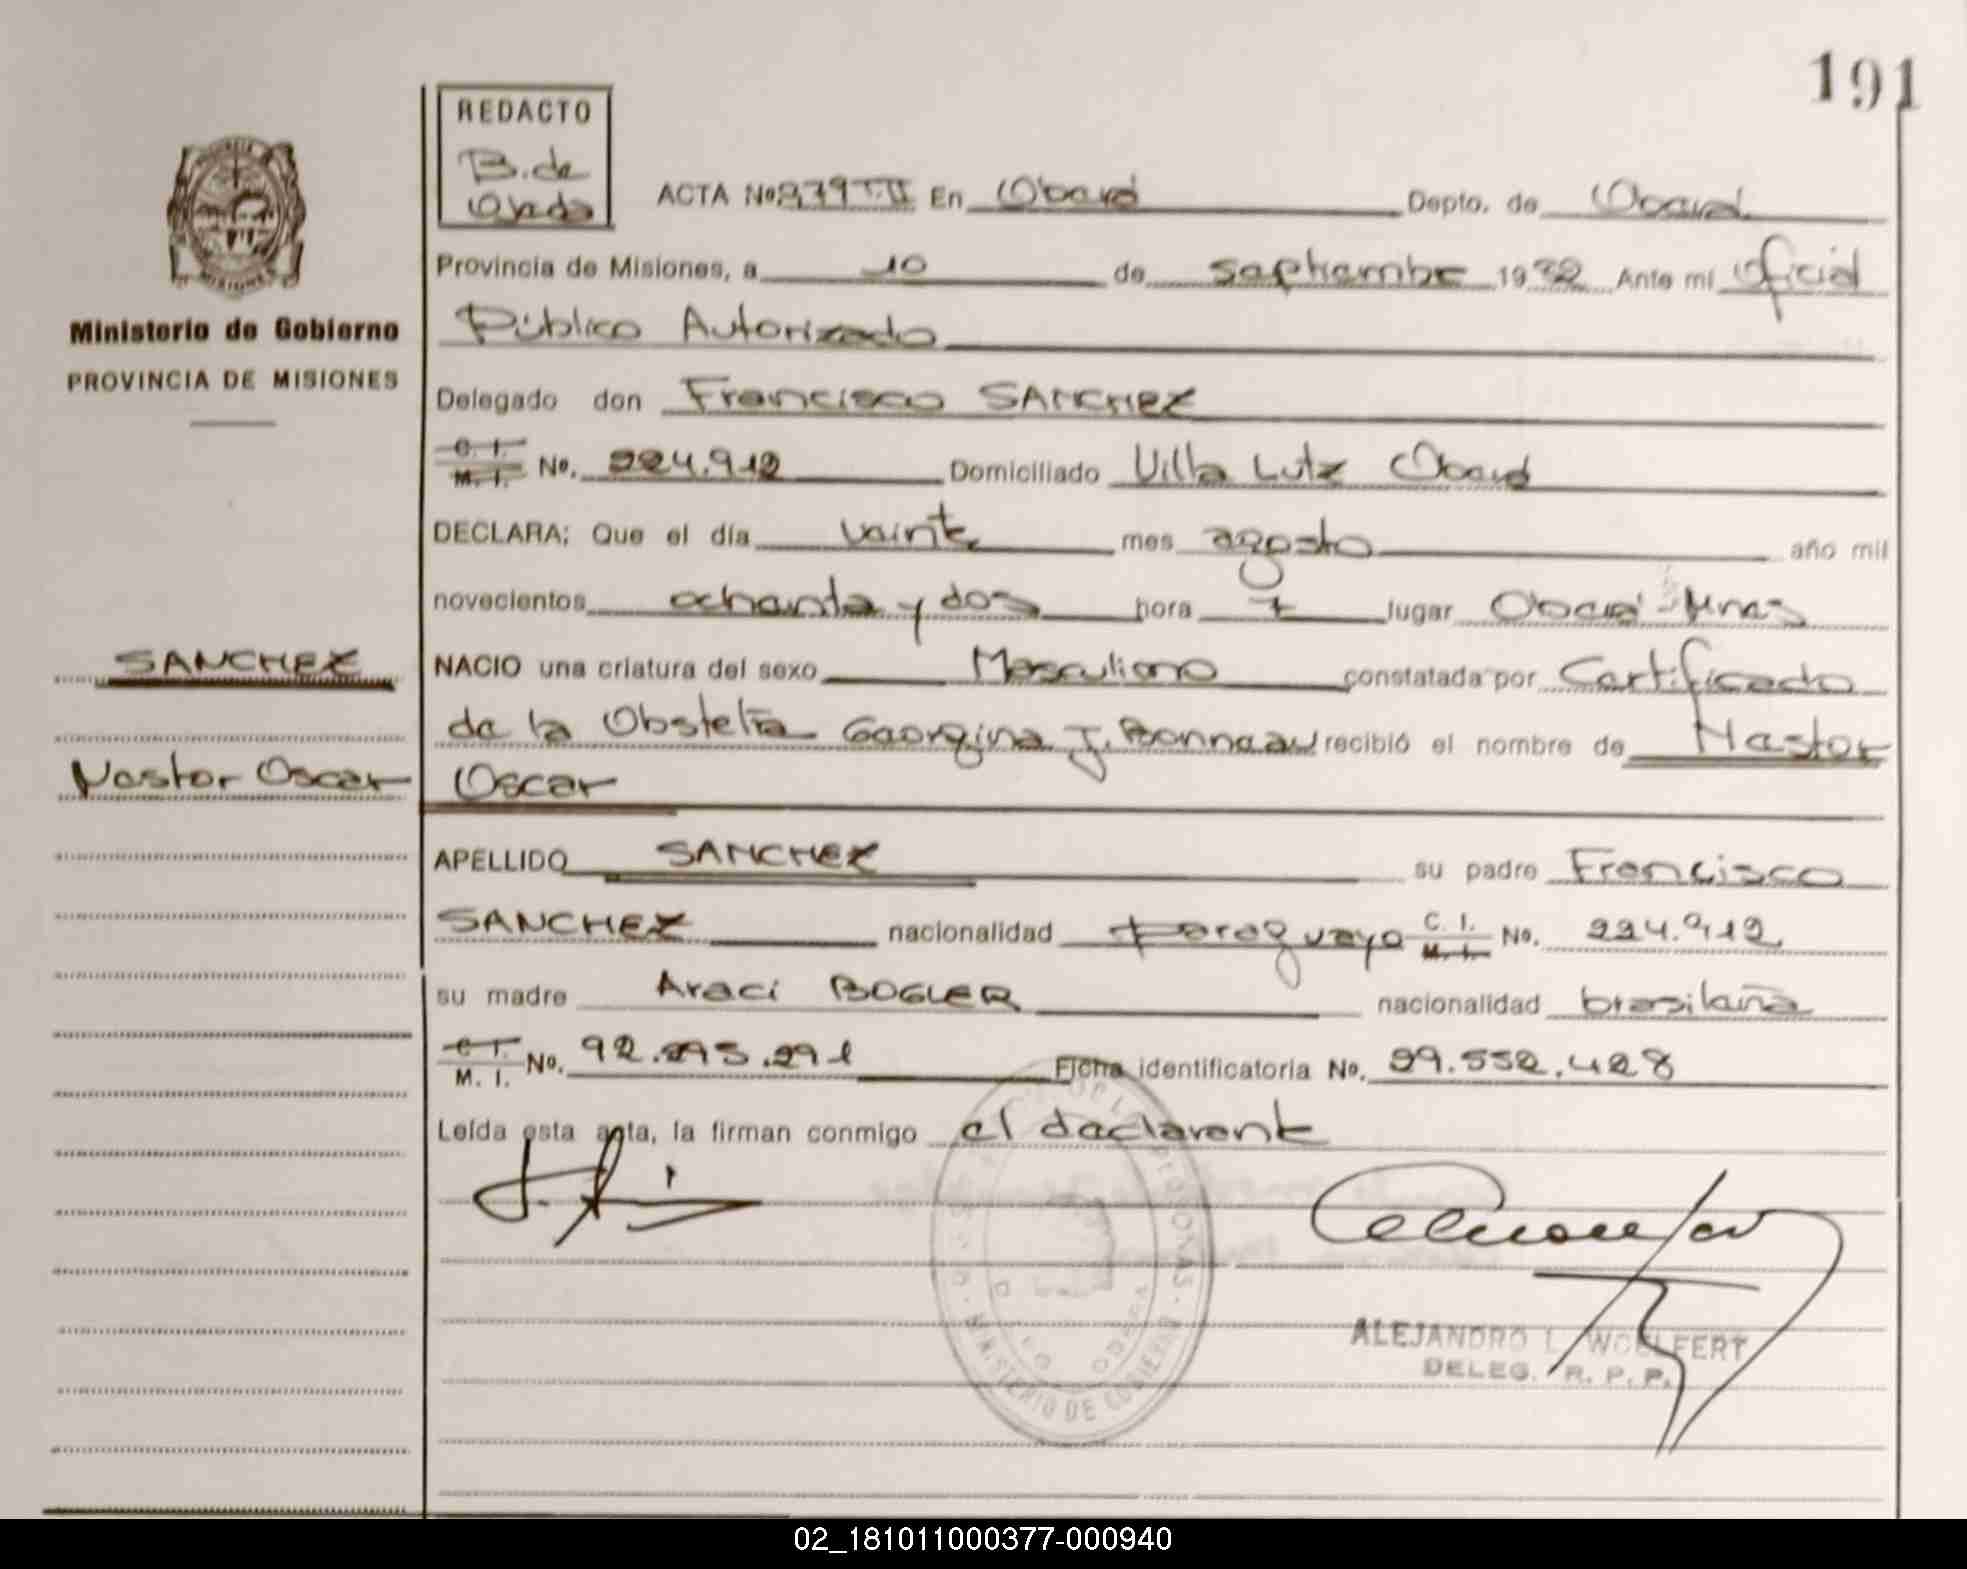 191
REDACTO
B. de
Ojeda
ACTA Nº 979 T.II En Oberá Depto. de Oberá
Provincia de Misiones, a 10 de septiembre 1982 Ante mi Oficial
Público Autorizado
Ministerio de Gobierno
PROVINCIA DE MISIONES
Delegado don Francisco SANCHEZ
C. I.
M. I. No. 224.912 Domiciliado Villa Lutz Oberá
DECLARA; Que el día veinte mes agosto año mil
novecientos ochenta y dos hora 7 lugar Oberá Mnes
SANCHEZ
NACIO una criatura del sexo Masculino constatada por Certificado
de la Obstetra Georgina J. Bonneau recibió el nombre de Nestor
Nestor Oscar
Oscar
APELLIDO SANCHEZ su padre Francisco
SANCHEZ nacionalidad paraguaya C. I. M. I. No. 224.912
su madre Araci BOGLER nacionalidad brasileña
C. I.
M. I. No. 92.295.291 Ficha identificatoria No. 29.552.428
Leída esta acta, la firman conmigo el declarante
MINISTERIO DE GOBIERNO
OBERA
ALEJANDRO L. WOELFERT
DELEG. R. P. P.
02_181011000377-000940